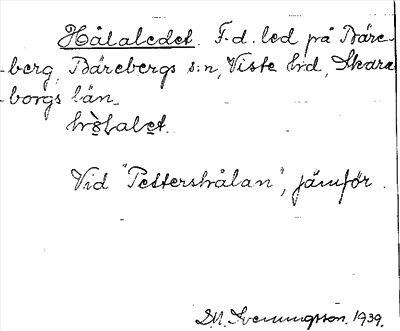 Hålaledet. F.d. led på Bäre-
berg, Bärebergs s:n, Viste hd, Skara-
borgs län.
Vid "Pettershålan", jämför.
D.N. Svenningsson. 1939.